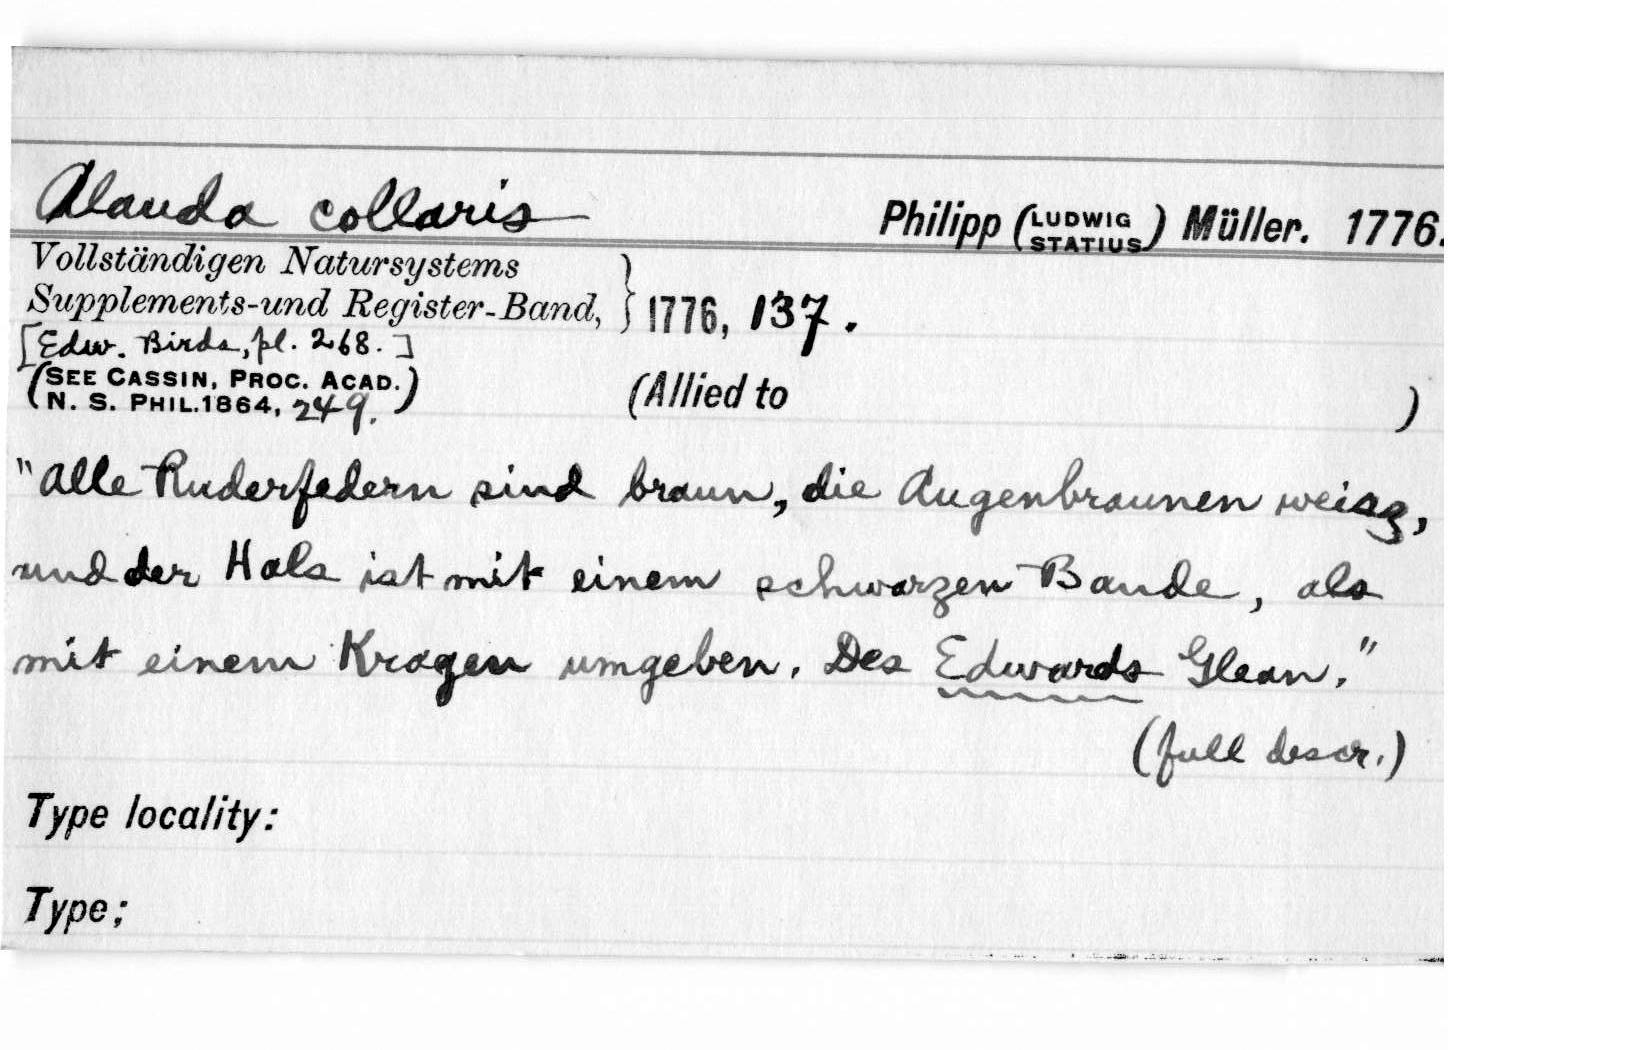 Alauda collaris Philipp (LUDWIG STATIUS) Müller. 1776.
Vollständigen Natursystems
Supplements-und Register-Band, } 1776, 137.
[Edw. Birds, pl. 268.]
(SEE CASSIN, PROC. ACAD.
N. S. PHIL. 1864, 249.) (Allied to )
"Alle Ruderfedern sind braun, die Augenbraunen weisz,
und der Hals ist mit einem schwarzen Bande, als
mit einem Kragen umgeben. Des Edwards Glean."
(full descr.)
Type locality:
Type;